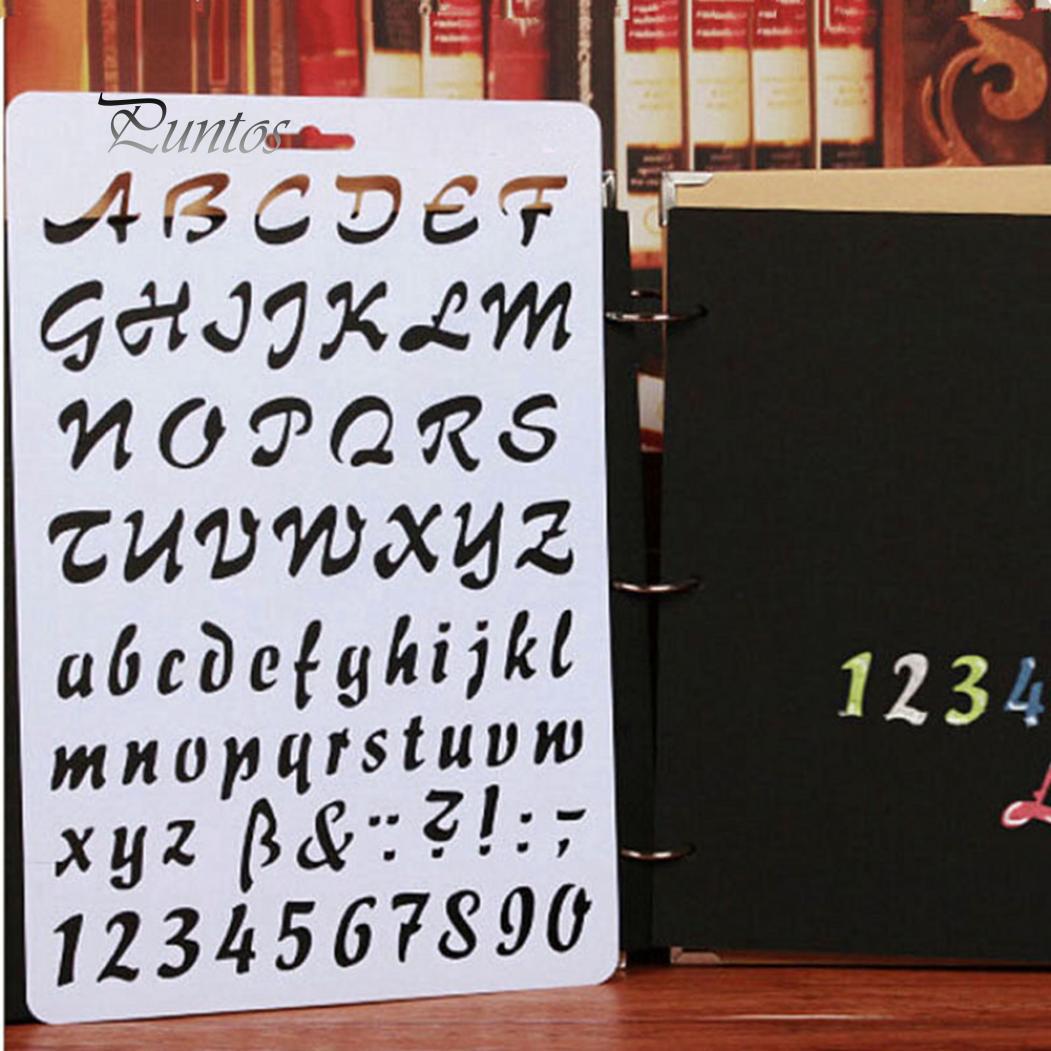 Puntos
A B C D E F
G H I J K L M
N O P Q R S
T U V W X Y Z
a b c d e f g h i j k l
m n o p q r s t u v w
x y z ß & ¨ : ? ! : ; -
1 2 3 4 5 6 7 8 9 0
1 2 3 4
L